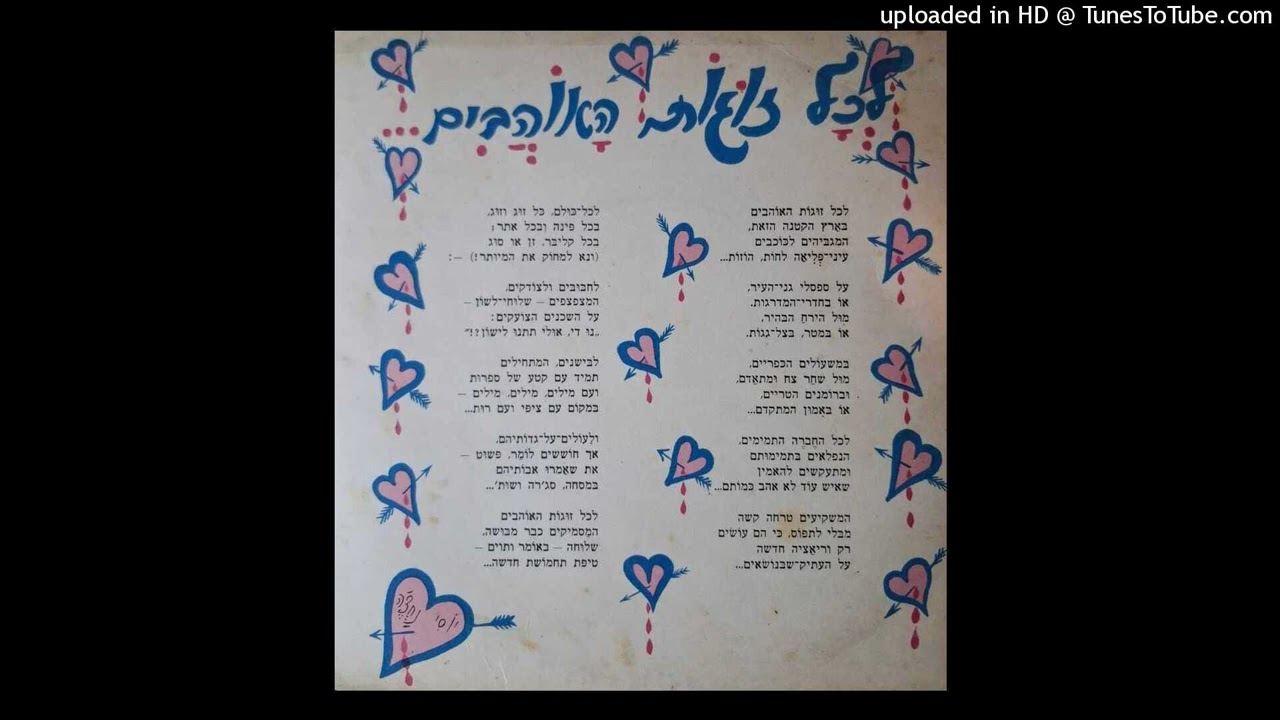 uploaded in HD @ TunesToTube.com
לְכָל זוּגוֹת הָאוֹהֲבִים...
לכל זוגות האוהבים
בארץ הקטנה הזאת,
המגביהים לכוכבים
עיני־פליאה לחות, הוזות...
על ספסלי גני־העיר,
או בחדרי־המדרגות,
מול הירח הבהיר,
או במטר, בצל־גגות.
במשעולים הכפריים,
מול שחר צח ומתאדם,
וברומנים הטריים,
או באמון המתקדם...
לכל החברה התמימים,
הנפלאים בתמימותם
ומתעקשים להאמין
שאיש עוד לא אהב כמותם...
המשקיעים טרחה קשה
מבלי לתפוס, כי הם עושים
רק וריאציה חדשה
על העתיק־שבנושאים...
לכל־כולם, כל זוג וזוג,
בכל פינה ובכל אתר;
בכל קליבר, זן או סוג
(ונא למחוק את המיותר!) —:
לחבובים ולצודקים,
המצפצפים — שלוחי־לשון —
על השכנים הצועקים:
„נו די, אולי תתנו לישון?!"
לבישנים, המתחילים
תמיד עם קטע של ספרות
ועם מילים, מילים, מילים —
במקום עם ציפי ועם רות...
ולעולים־על־גדותיהם,
אך חוששים לומר, פשוט —
את שאמרו אבותיהם
במסחה, סג'רה ושות'...
לכל זוגות האוהבים
המסמיקים כבר מבושה,
שלוחה — באומר ותוים —
טיפת תחמושת חדשה...
יוסי